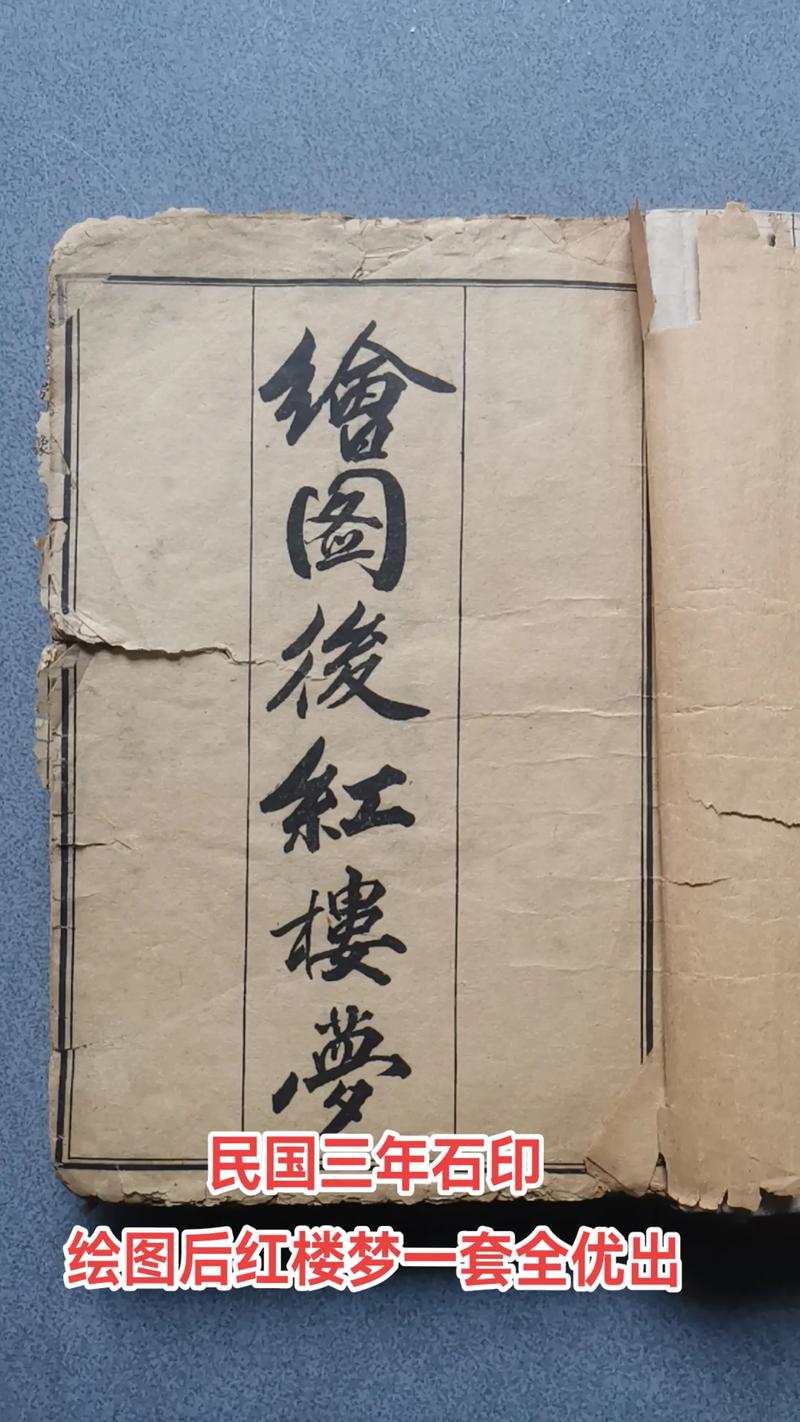 繪图後紅樓夢
民国三年石印
绘图后红楼梦一套全优出